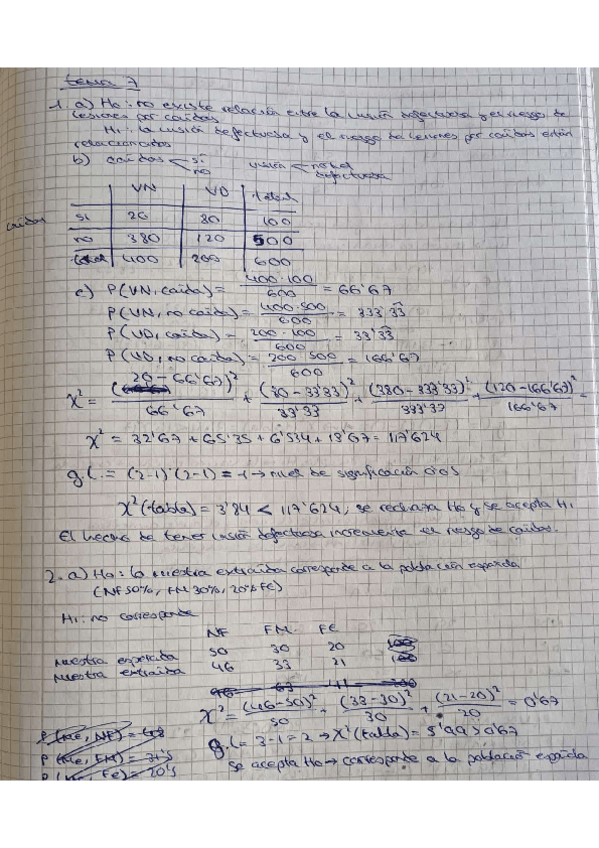 tema 7
1. a) Ho: no existe relación entre la visión defectuosa y el riesgo de
lesiones por caídas
H1: la visión defectuosa y el riesgo de lesiones por caídas están
relacionados
b) caídas < sí no visión < normal defectuosa
VN VD total
caídas
si 20 80 100
no 380 120 500
total 400 200 600
c) P(VN, caída) = 400·100 / 600 = 66'67
P(VN, no caída) = 400·500 / 600 = 333'33
P(VD, caída) = 200·100 / 600 = 33'33
P(VD, no caída) = 200·500 / 600 = 166'67
X² = (20-66'67)² / 66'67 + (80-33'33)² / 33'33 + (380-333'33)² / 333'33 + (120-166'67)² / 166'67 =
X² = 32'67 + 65'35 + 6'534 + 13'07 = 117'624
g.l. = (2-1)·(2-1) = 1 → nivel de significación 0'05
X² (tabla) = 3'84 < 117'624, se rechaza Ho y se acepta H1
El hecho de tener visión defectuosa incrementa el riesgo de caídas.
2. a) Ho: la muestra extraída corresponde a la población esperada
(NF 50%, FM 30%, 20% FE)
H1: no corresponde
NF FM FE
muestra esperada 50 30 20 100
muestra extraída 46 33 21 100
96 63 41 200
X² = (46-50)² / 50 + (33-30)² / 30 + (21-20)² / 20 = 0'67
P(Me, NF) = 48
g.l = 3-1 = 2 → X² (tabla) = 5'99 > 0'67
P(Me, FM) = 31'5
P(Me, FE) = 20'5
se acepta Ho → corresponde a la población esperada